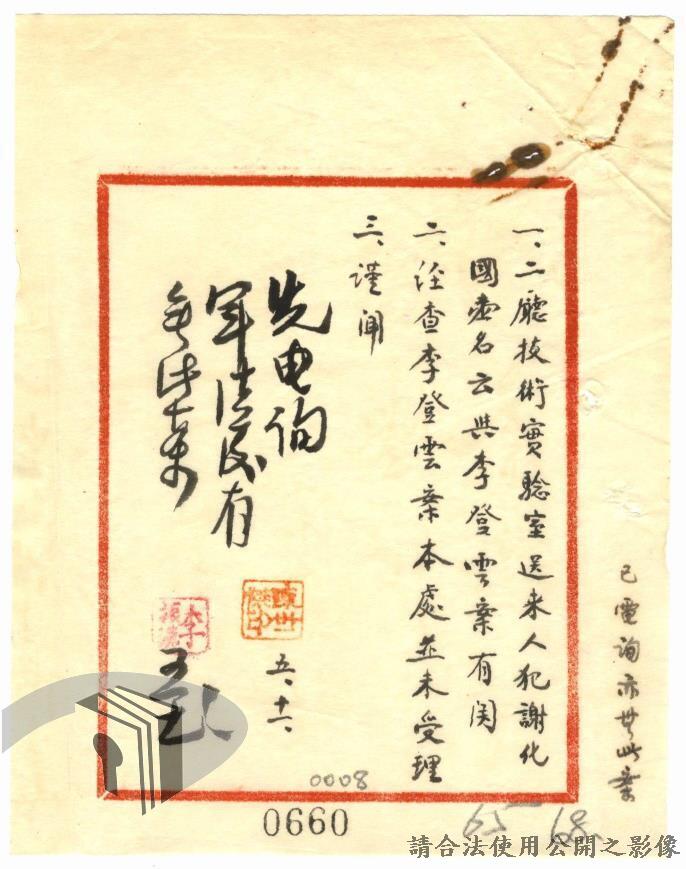 已電詢亦無此案
一、二廳技術實驗室送來人犯謝化
國密名云與李登雲案有関
二、经查李登雲案本處並未受理
三、謹聞
先电询
軍法局有
無此案
五、十六
0008
0660
65
請合法使用公開之影像